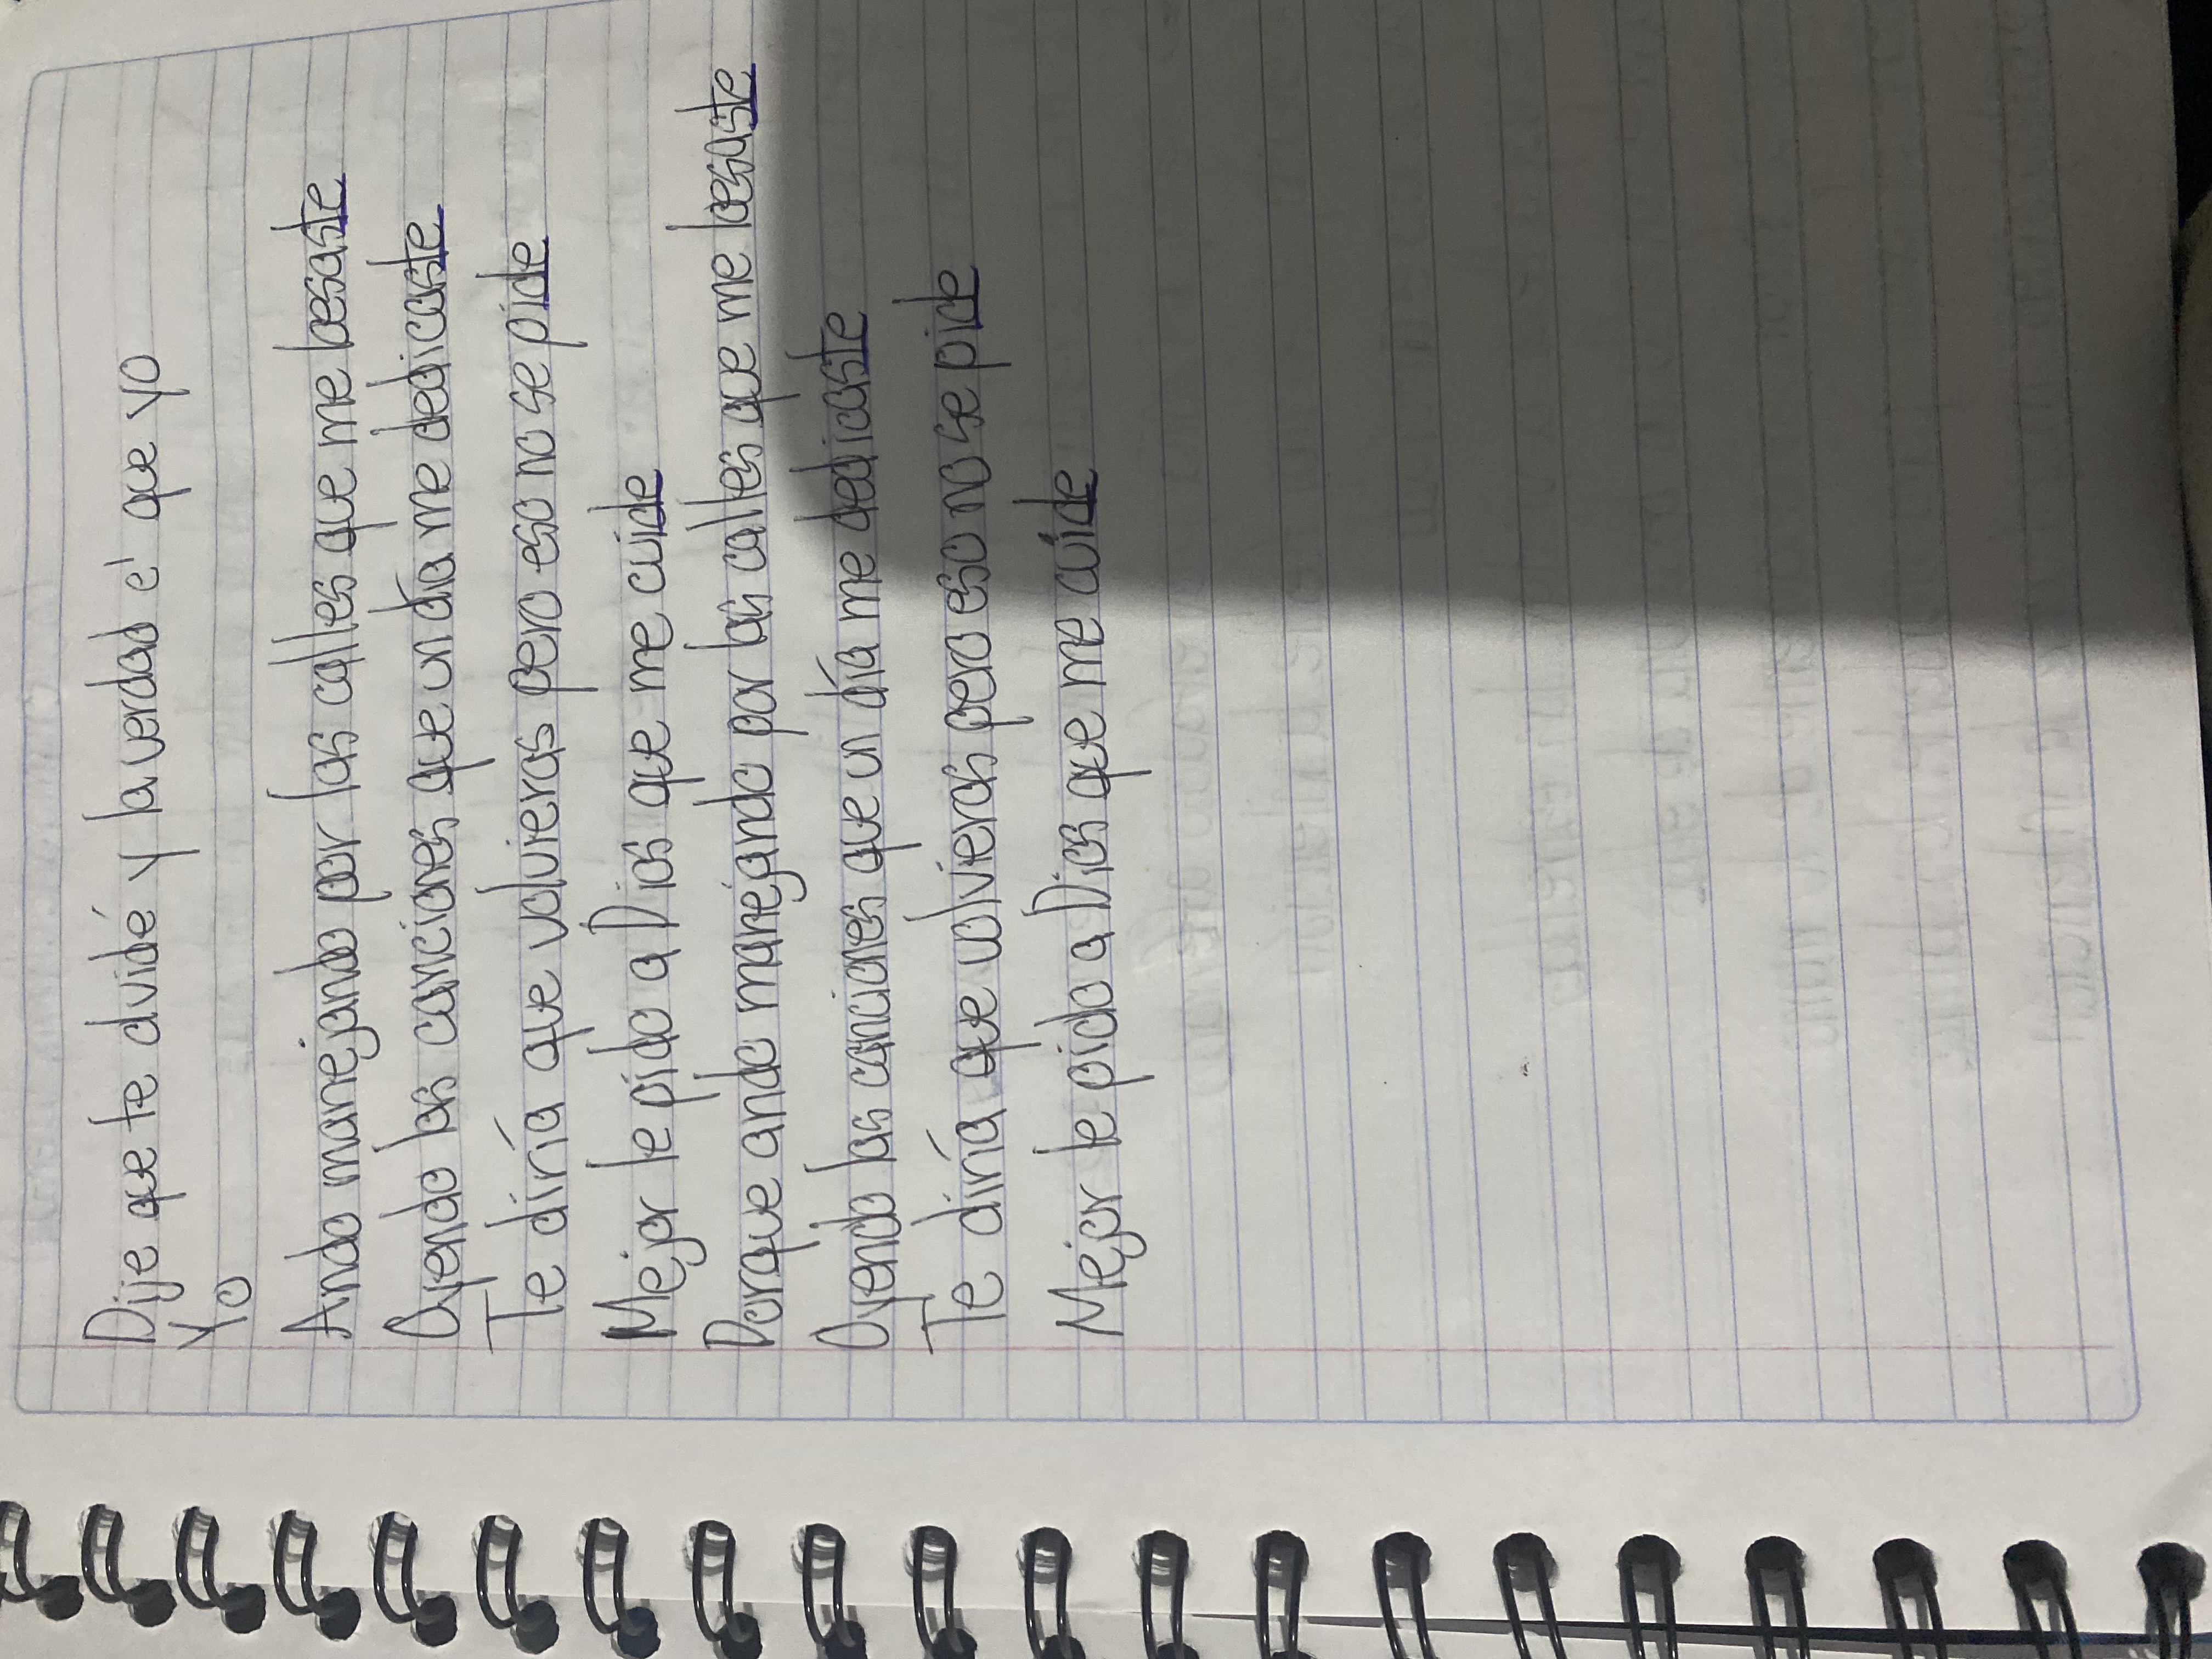 Dije que te dvidé y la verdad e' que yo
Yo
Ando manejando por las calles que me besaste
Oyendo las canciones que un día me dedicaste
Te diría que volvieras pero eso no se pide
Mejor le pido a Dios que me cuide
Porque ando manejando por las calles que me besaste
Oyendo las canciones que un día me dedicaste
Te diría que volvieras pero eso no se pide
Mejor le pido a Dios que me cuide